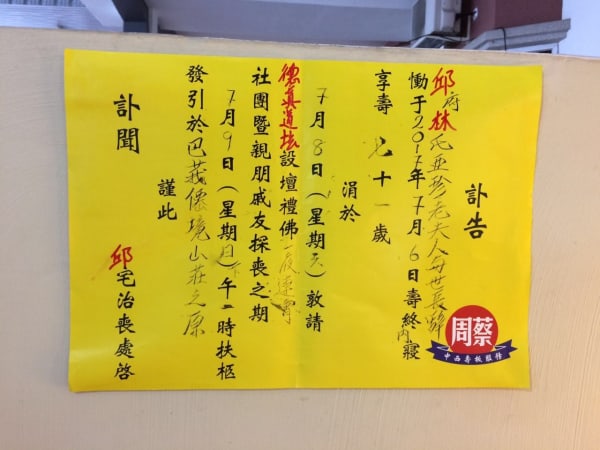 訃告
邱府林氏亜珍老夫人与世長辞
慟于2017年7月6日壽終內寢
享壽七十一歲
涓於
7月8日(星期六)敦請
德真道坛設壇禮佛一度連宵
社團暨親朋戚友探喪之期
7月9日(星期日)下午二時扶柩
發引於巴莪僊境山莊之原
謹此
訃聞
邱宅治喪處啓
周蔡
中西壽板服務